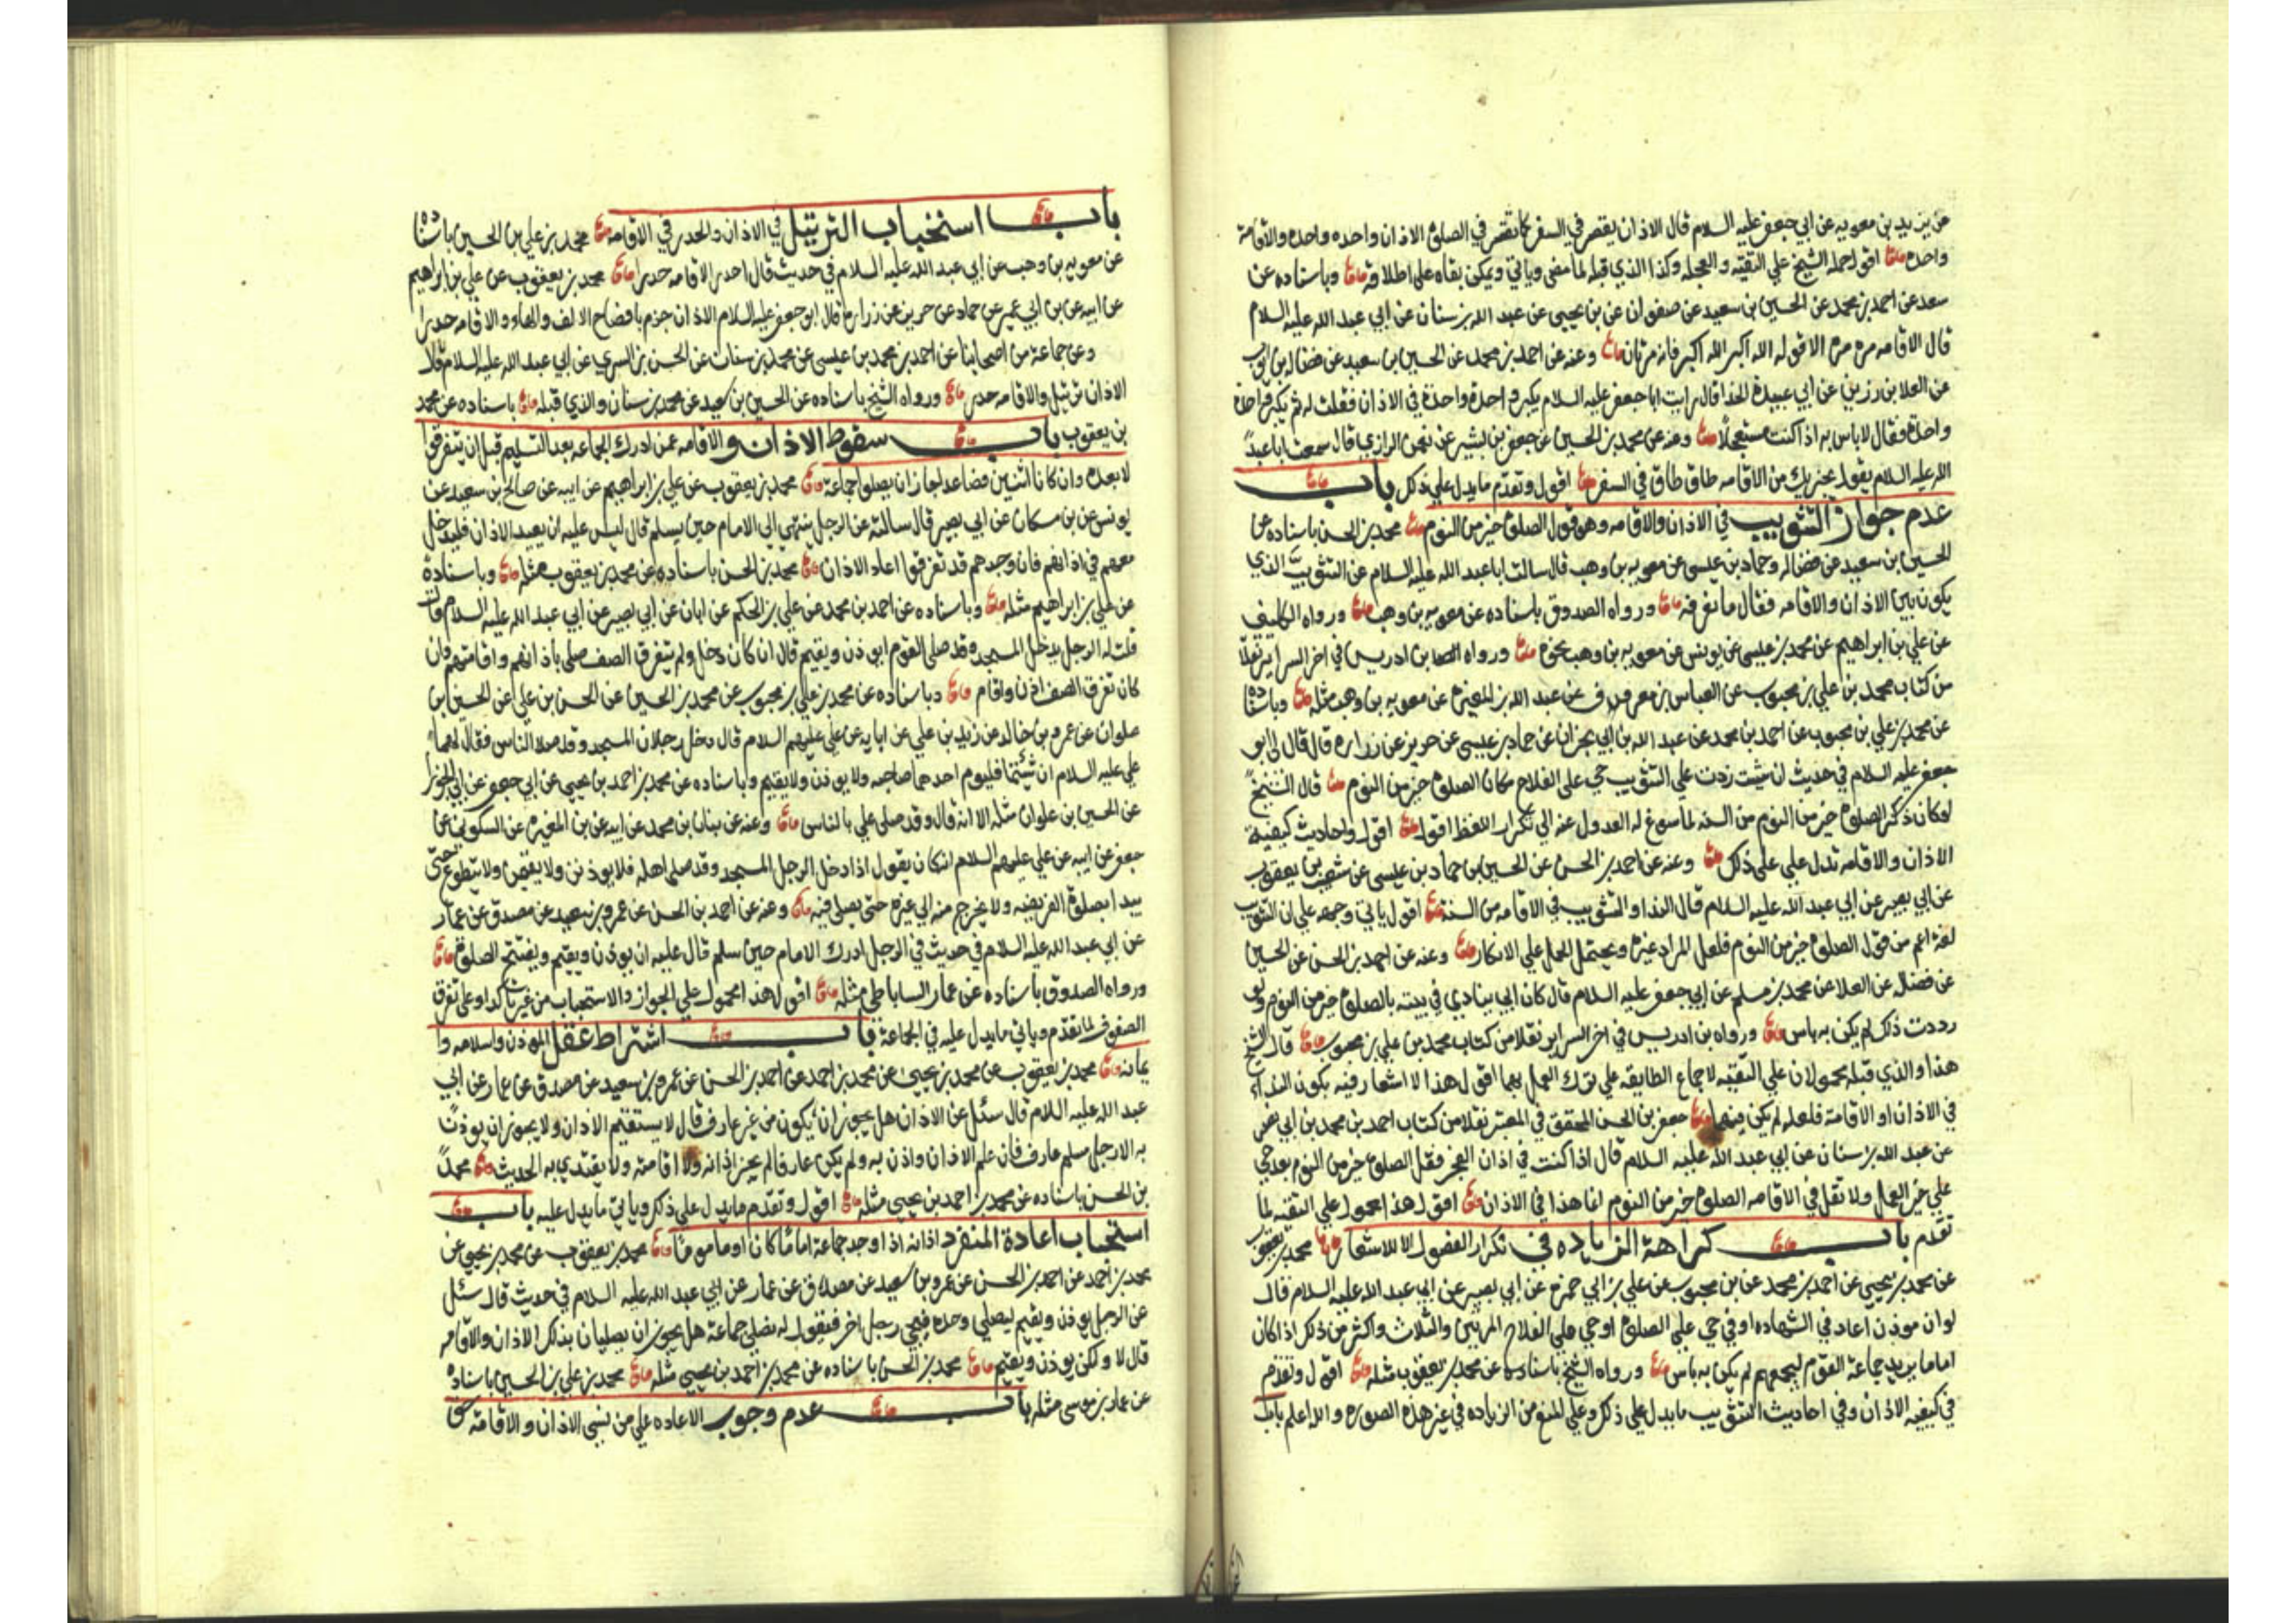 عن يزيد بن معويه عن ابي جعفر عليه السلام قال الاذان يقصر في السفر كما تقصر في الصلوة الاذان واحده واحده والاقامة
واحده اقول حمله الشيخ علي التقيّه والعجله وكذا الذي قبله لما مضى وياتي ويمكن بقاه على اطلاقه وباسناده عن
سعد عن احمد بن محمد عن الحسين بن سعيد عن صفوان عن بن يحيى عن عبد الله بن سنان عن ابي عبد الله عليه السلام
قال الاقامه مره مره الا قوله الله اكبر الله اكبر فانه مرتان وعنه عن احمد بن محمد عن الحسين بن سعيد عن فضاله بن ايوب
عن العلا بن رزين عن ابي عبيدة الحذا قال رايت ابا جعفر عليه السلام يكبر واحدة واحدة في الاذان فقلت له لم تكبر واحدة
واحدة فقال لا باس به اذا كنت مستعجلًا وعنه عن محمد بن الحسين عن جعفر بن بشير عن نعمن الرازي قال سمعت ابا عبد
الله عليه السلام يقول يجزيك من الاقامه طاق طاق في السفر اقول وتقدم ما يدل علي ذلك باب
عدم جواز التثويب في الاذان والاقامه وهو قول الصلوة خير من النوم محمد بن الحسن باسناده عن
الحسين بن سعيد عن فضاله وحماد بن عيسى عن معويه بن وهب قال سالت ابا عبد الله عليه السلام عن التثويب الذي
يكون بين الاذان والاقامه فقال ما نعرفه ورواه الصدوق باسناده عن معويه بن وهب ورواه الكليني
عن علي بن ابراهيم عن محمد بن عيسى عن يونس عن معويه بن وهب نحوه ورواه بن ادريس في اخر السراير نقلًا
من كتاب محمد بن علي بن محبوب عن العباس بن معروف عن عبد الله بن المغيره عن معويه بن وهب مثله وباسناده
عن محمد بن علي بن محبوب عن احمد بن محمد عن عبد الله بن ابي نجران عن حماد بن عيسى عن حريز عن زراره قال قال لي ابو
جعفر عليه السلام في حديث ان شيت زدت علي التثويب حي على الفلاح مكان الصلوة خير من النوم قال الشيخ
لو كان ذكر الصلوة خير من النوم من السنه لما سوغ له العدول عنه الي تكرار اللفظ اقول واحاديث كيفية
الاذان والاقامه تدل علي ذلك وعنه عن احمد بن الحسن عن الحسين عن حماد بن عيسى عن شعيب بن يعقوب
عن ابي بصير عن ابي عبد الله عليه السلام قال النداو التثويب في الاقامه من السنة اقول ياتي وجهه علي ان التثويب
لغة اعم من قول الصلوة خير من النوم فلعل المراد غيره ويحتمل الحمل علي الانكار وعنه عن احمد بن الحسن عن الحسين
عن فضاله عن العلا عن محمد بن مسلم عن ابي جعفر عليه السلام قال كان ابي ينادي في بيته بالصلوة خير من النوم ولو
رددت ذلك لم يكن به باس ورواه بن ادريس في اخر السراير نقلا من كتاب محمد بن علي بن محبوب قال الشيخ
هذا والذي قبله محمولان علي التقيّه لاجماع الطايفه علي ترك العمل بهما اقول هذا لا اشعار فيه بكون النداء
في الاذان او الاقامة فلعله لم يكن فيهما جعفر بن الحسن المحقق في المعتبر نقلا من كتاب احمد بن محمد بن ابي نصر
عن عبد الله بن سنان عن ابي عبد الله عليه السلام قال اذا كنت في اذان الفجر فقل الصلوة خير من النوم بعد حي
علي خير العمل ولا تقل في الاقامه الصلوة خير من النوم انما هذا في الاذان اقول هذا محمول علي التقيه لما
تقدم باب كراهة الزياده في تكرار الفصول الا للاشعار محمد بن يعقوب
عن محمد بن يحيى عن احمد بن محمد عن بن محبوب عن علي بن ابي حمزة عن ابي بصير عن ابي عبد الله عليه السلام قال
لو ان موذن اعاد في الشهاده او في حي علي الصلوة او حي علي الفلاح المرتين والثلاث واكثر من ذلك اذا كان
اماما يريد جماعة القوم ليجمعهم لم يكن به باس ورواه الشيخ باسناده عن محمد بن يعقوب مثله اقول وتقدم
في كيفيه الاذان وفي احاديث التثويب ما يدل علي ذلك وعلي المنع من الزياده في غير هذه الصوره والله اعلم باب
باب استحباب الترتيل في الاذان والحدر في الاقامه محمد بن علي بن الحسين باسناده
عن معويه بن وهب عن ابي عبد الله عليه السلام في حديث قال احدر الاقامه حدرا محمد بن يعقوب عن علي بن ابراهيم
عن ابيه عن بن ابي عمير عن حماد عن حريز عن زراره قال ابو جعفر عليه السلام الاذان جزم بافصاح الالف والهاء والاقامه حدرا
وعن جماعة من اصحابنا عن احمد بن محمد بن عيسى عن محمد بن سنان عن الحسن بن السري عن ابي عبد الله عليه السلام قال
الاذان ترتيل والاقامه حدر ورواه الشيخ باسناده عن الحسين بن سعيد عن محمد بن سنان والذي قبله باسناده عن محمد
بن يعقوب باب سقوط الاذان والاقامه عمن ادرك الجماعه بعد التسليم قبل ان يتفرقوا
لا بعده وان كانا اثنين فصاعدا جاز ان يصلوا جماعة محمد بن يعقوب عن علي بن ابراهيم عن ابيه عن صالح بن سعيد عن
يونس عن بن مسكان عن ابي بصير قال سالته عن الرجل ينتهي الي الامام حين يسلم قال ليس عليه ان يعيد الاذان فليدخل
معهم في اذانهم فان وجدهم قد تفرقوا اعاد الاذان محمد بن الحسن باسناده عن محمد بن يعقوب مثله وباسناده
عن علي بن ابراهيم مثله وباسناده عن احمد بن محمد عن علي بن الحكم عن ابان عن ابي بصير عن ابي عبد الله عليه السلام قال
قلت له الرجل يدخل المسجد وقد صلي القوم ايوذن ويقيم قال ان كان دخل ولم يتفرق الصف صلى باذانهم واقامتهم وان
كان تفرق الصف اذن واقام وباسناده عن محمد بن علي بن محبوب عن محمد بن الحسين عن الحسن بن علي عن الحسين بن
علوان عن عمرو بن خالد عن زيد بن علي عن ابايه عن علي عليهم السلام قال دخل رجلان المسجد وقد صلا الناس فقال لهما
علي عليه السلام ان شئتما فليوم احدهما صاحبه ولا يوذن ولا يقيم وباسناده عن محمد بن احمد بن يحيى عن ابي جعفر عن ابي الجوزا
عن الحسين بن علوان مثله الا انه قال وقد صلى علي بالناس وعنه عن بنان بن محمد عن ابيه عن بن المغيره عن السكوني عن
جعفر عن ابيه عن علي عليهم السلام انه كان يقول اذا دخل الرجل المسجد وقد صلى اهله فلا يوذنن ولا يقيمن ولا يتطوع حتى
يبدا بصلوة الفريضه ولا يخرج منه الي غيره حتى يصلى فيه وعنه عن احمد بن الحسن عن عمرو بن سعيد عن مصدق عن عمار
عن ابي عبد الله عليه السلام في حديث في الرجل ادرك الامام حين سلم قال عليه ان يوذن ويقيم ويفتتح الصلوة
ورواه الصدوق باسناده عن عمار الساباطي مثله اقول هذا محمول علي الجواز والاستحباب من غير تاكد او على تفرق
الصفوف لما تقدم وياتي ما يدل عليه في الجماعة باب اشتراط عقل الموذن واسلامه وا
يمانه محمد بن يعقوب عن محمد بن يحيى عن محمد بن احمد عن احمد بن الحسن عن عمرو بن سعيد عن مصدق عن عمار عن ابي
عبد الله عليه السلام قال سئل عن الاذان هل يجوز ان يكون من غير عارف قال لا يستقيم الاذان ولا يجوز ان يوذن
به الا رجل مسلم عارف فان علم الاذان واذن به ولم يكن عارفا لم يجز اذانه ولا اقامته ولا يقتدي به الحديث محمد
بن الحسن باسناده عن محمد بن احمد بن يحيى مثله اقول وتقدم ما يدل علي ذلك وياتي ما يدل عليه باب
استحباب اعادة المنفرد اذانه اذا وجد جماعة اماما كان او ماموما محمد بن يعقوب عن محمد بن يحيى عن
محمد بن احمد عن احمد بن الحسن عن عمرو بن سعيد عن مصدق عن عمار عن ابي عبد الله عليه السلام في حديث قال سئل
عن الرجل يوذن ويقيم ليصلي وحده فيجي رجل اخر فيقول له نصلي جماعة هل يجوز ان يصليان بذلك الاذان والاقامه
قال لا ولكن يوذن ويقيم محمد بن الحسن باسناده عن محمد بن احمد بن يحيى مثله محمد بن علي بن الحسين باسناده
عن عمار بن موسى مثله باب عدم وجوب الاعاده علي من نسي الاذان والاقامة